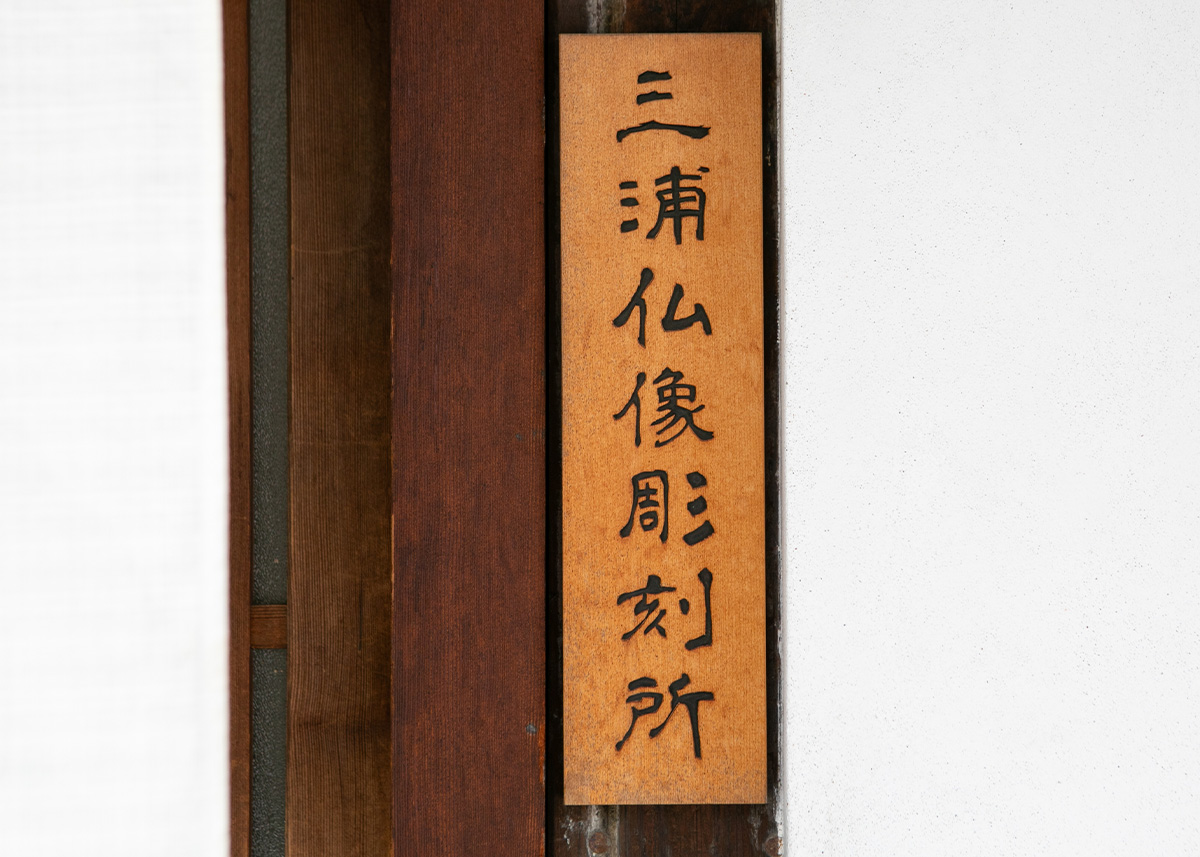 三浦仏像彫刻所